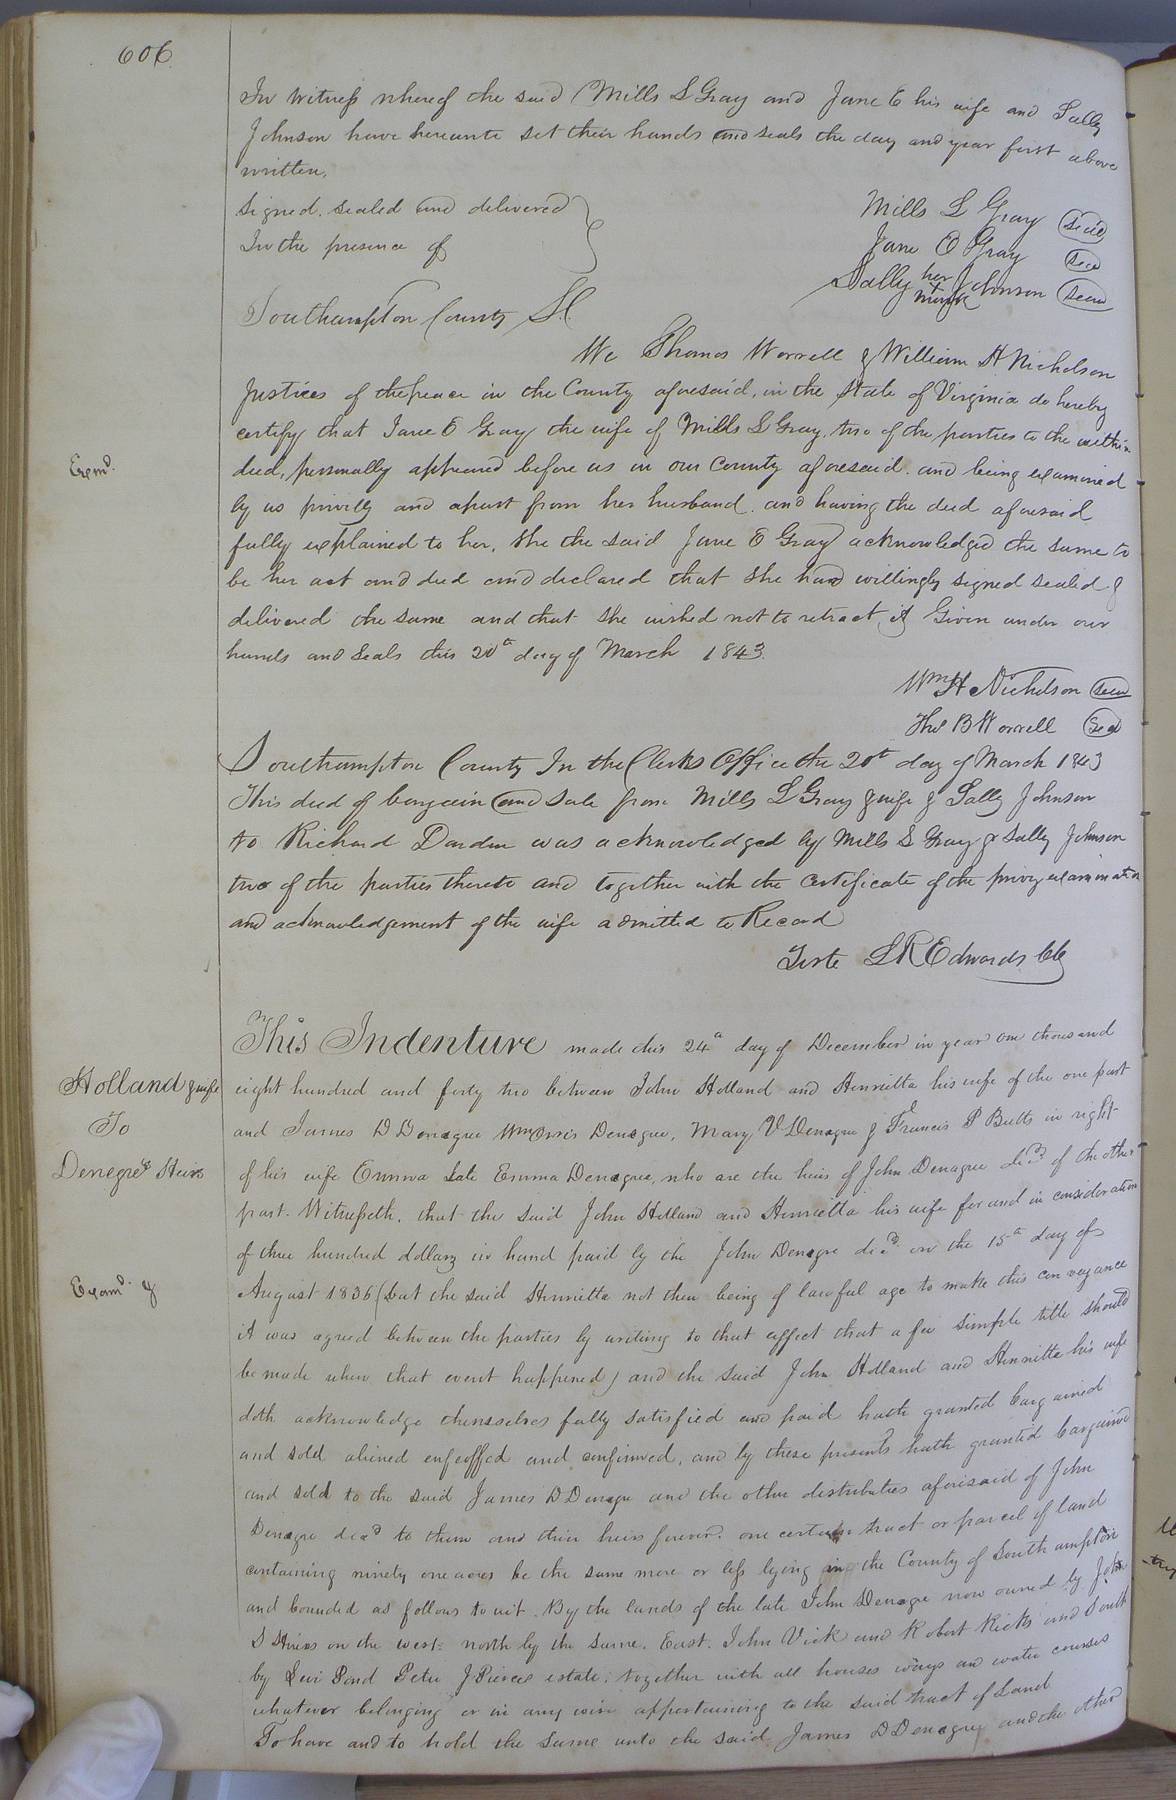 606
In Witness whereof the said Mills L Gray and Jane E his wife and Sally
Johnson have hereunto set their hands and seals the day and year first above
written.
Signed, sealed and delivered
In the presence of
Mills L Gray Seal
Jane E Gray Seal
Sally her + mark Johnson Seal
Southampton County Sc
We Thomas Worrell & William H Nicholson
Justices of the peace in the County aforesaid, in the State of Virginia do hereby
certify that Jane E Gray the wife of Mills L Gray, two of the parties to the within
Exmd.
deed, personally appeared before us in our County aforesaid. and being examined
by us privily and apart from her husband. and having the deed aforesaid
fully explained to her, she the said Jane E Gray acknowledged the same to
be her act and deed and declared that she had willingly signed sealed &
delivered the same and that she wished not to retract it Given under our
hands and seals this 20th day of March 1843.
Wm H Nicholson Seal
Thos B Worrell Seal
Southampton County In the Clerks Office the 20th day of March 1843
This deed of bargain and sale from Mills L Gray & wife & Sally Johnson
to Richard Darden was acknowledged by Mills L Gray & Sally Johnson
two of the parties thereto and together with the certificate of the privy examination
and acknowledgement of the wife admitted to Record
Teste L R Edwards Clk
This Indenture made this 24th day of December in year one thousand
Holland & wife
To
Denegre's Heirs
eight hundred and forty two between John Holland and Henrietta his wife of the one part
and James D Denegre Wm Orsis Denegre, Mary V Denegre & Francis P Butts in right
of his wife Emma late Emma Denegre, who are the heirs of John Denagre decd of the other
part. Witnesseth, that the said John Holland and Henrietta his wife for and in consideration
of three hundred dollars in hand paid by the John Denegre decd on the 15th day of
Examd. &
August 1836 (but the said Henrietta not then being of lawful age to make this conveyance
it was agreed between the parties by writing to that affect that a fee simple title should
be made when that event happened) and the said John Holland and Henrietta his wife
doth acknowledge themselves fully satisfied and paid hath granted bargained
and sold aliened enfeoffed and confirmed, and by these presents hath granted bargained
and sold to the said James D Denegre and the other distributies aforesaid of John
Denegre decd to them and their heirs forever. one certain tract or parcel of land
containing ninety one acres be the same more or less lying in the County of Southampton
and bounded as follows to wit. By the lands of the late John Denagre now owned by John
S on the west. north by the same, East. John Vick and Robert Ricks and South
by Levi Pond Peter J Pierces estate, together with all houses ways and water courses
whatever belonging or in any wise appertaining to the said tract of Land
To have and to hold the same unto the said James D Denegre and the other